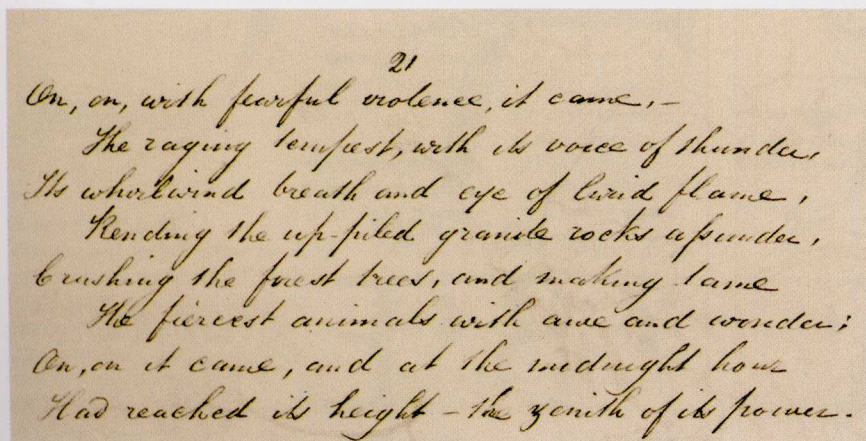 21
On, on, with fearful violence, it came, –
The raging tempest, with its voice of thunder,
Its whirlwind breath and eye of lurid flame,
Rending the up-piled granite rocks asunder,
Crushing the forest trees, and making tame
The fiercest animals with awe and wonder;
On, on it came, and at the midnight hour
Had reached its height – the zenith of its power.